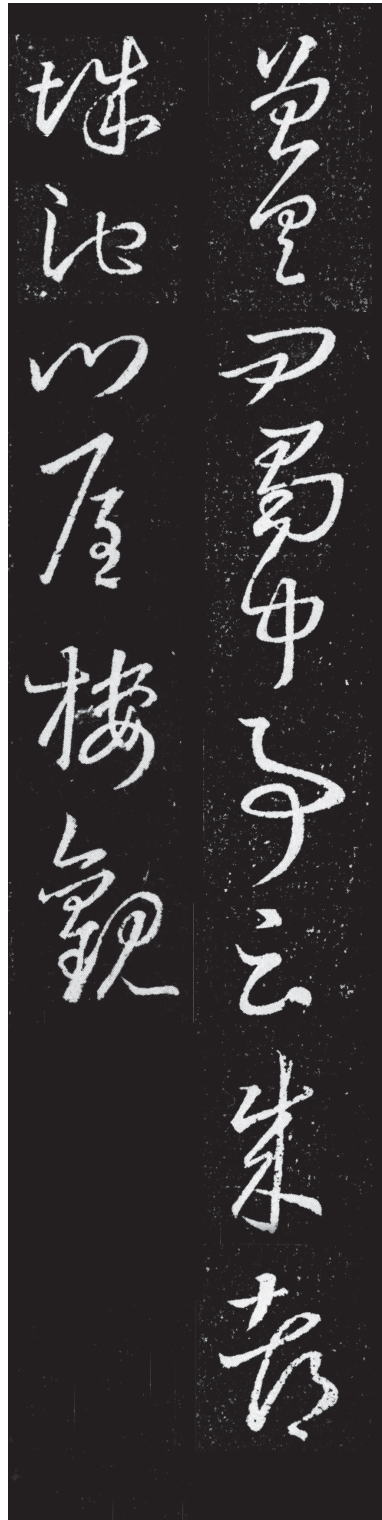 曾具問蜀中事云成都
城池門屋樓觀